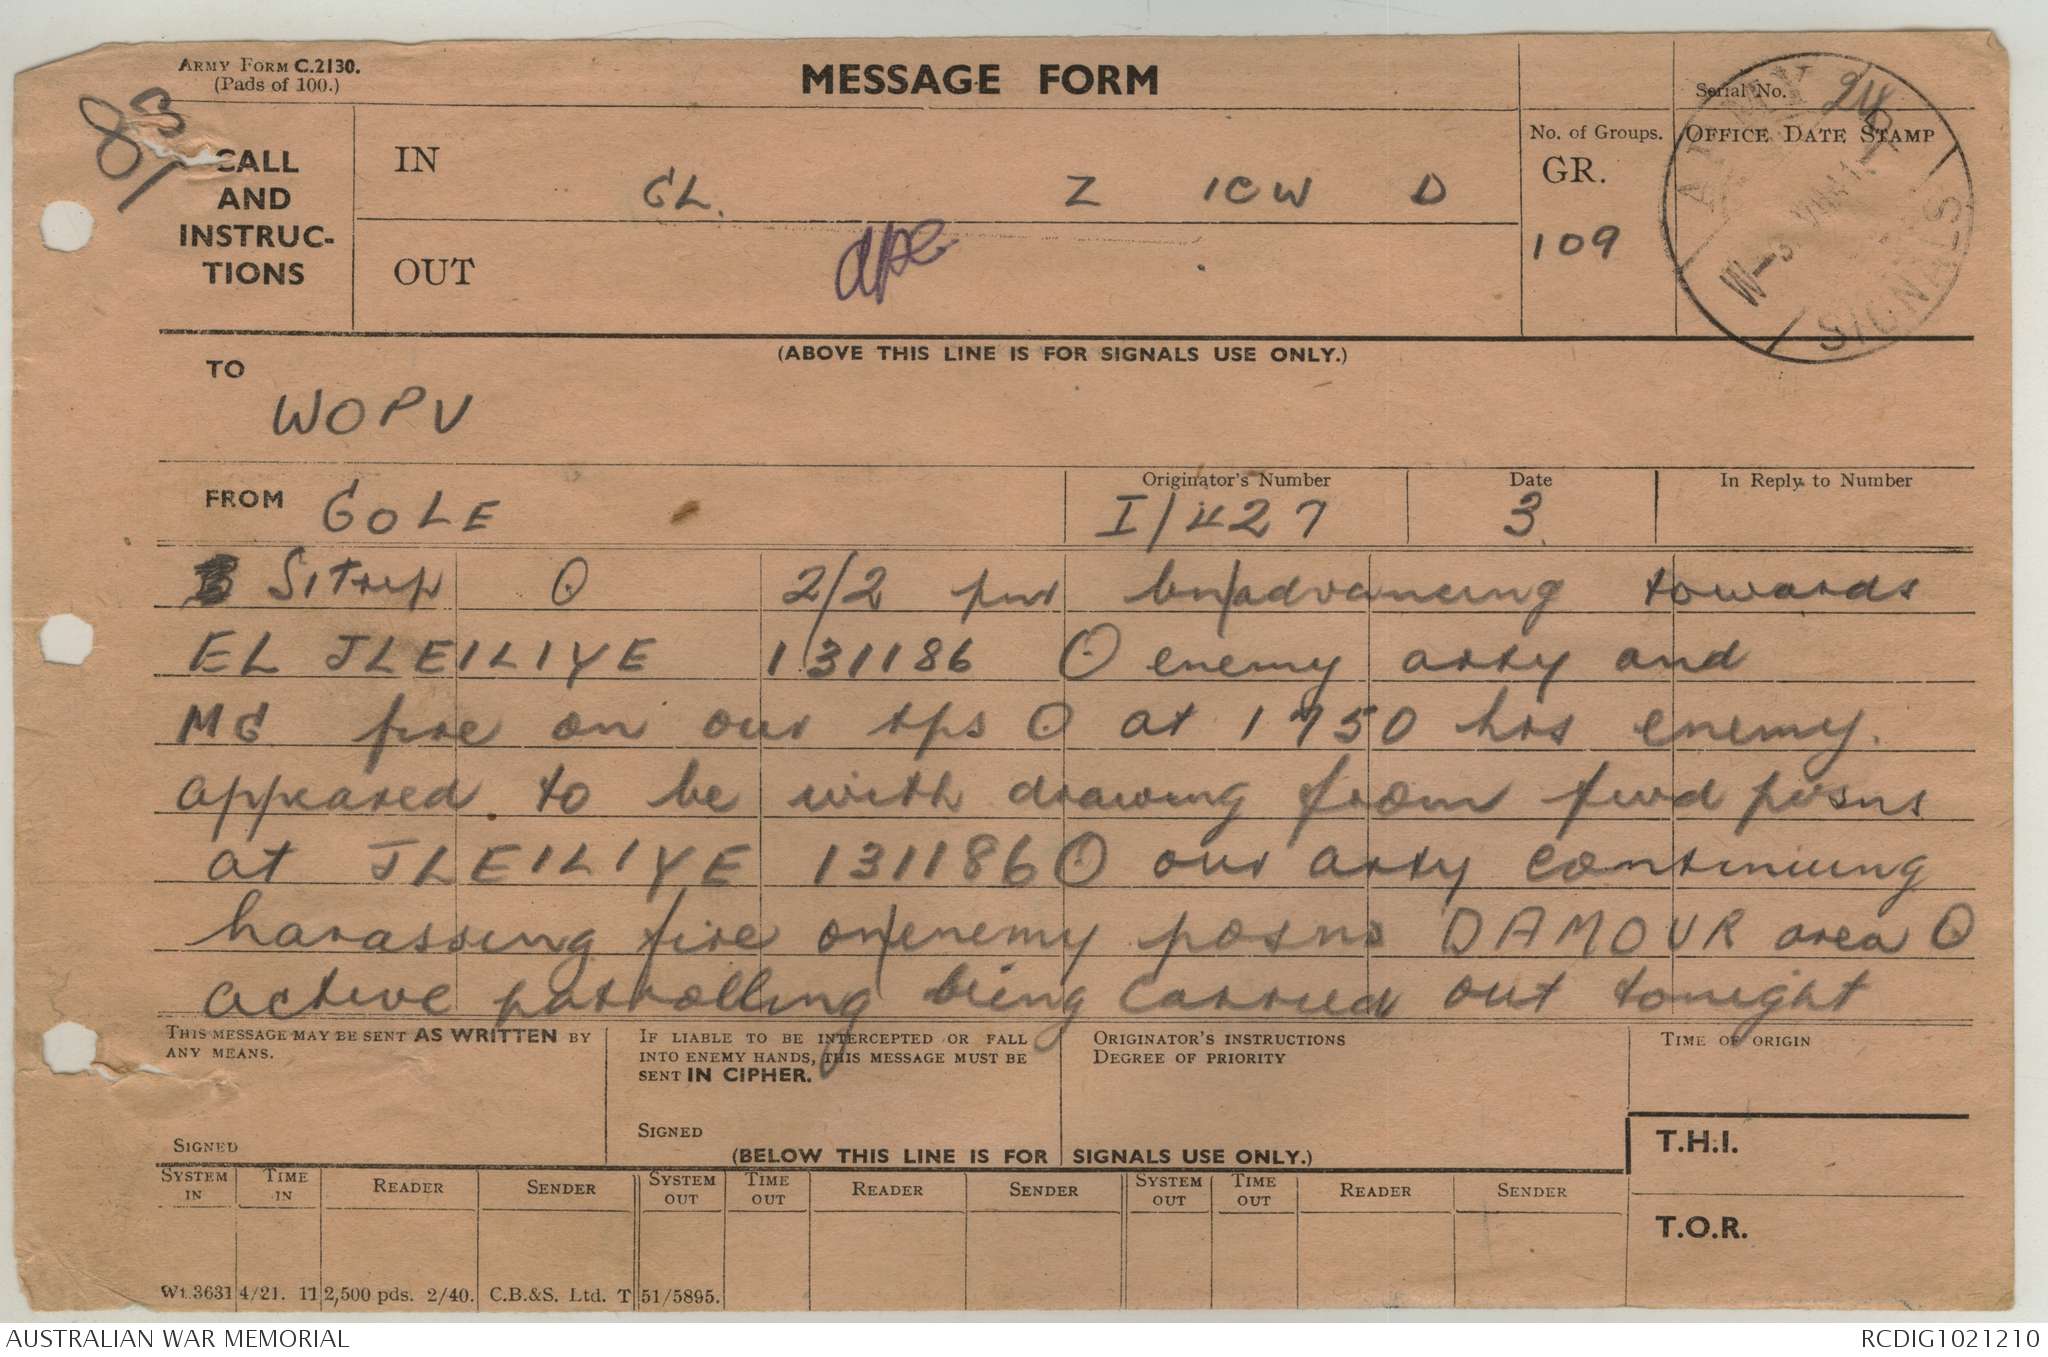 ARMY FORM C.2130.
(Pads of 100.)
MESSAGE FORM
Serial No.
83/
CALL
AND
INSTRUC-
TIONS
IN
GL. Z ICW D
OUT
No. of Groups.
GR.
109
OFFICE DATE STAMP
ARMY
SIGNALS
(ABOVE THIS LINE IS FOR SIGNALS USE ONLY.)
TO
WOPV
FROM GOLE
Originator's Number
I/427
Date
3
In Reply to Number
Sitrep O 2/2 pnr bn/advancing towards
EL JLEILIYE 131186 O enemy arty and
MG fire on our tps O at 1750 hrs enemy.
appeared to be with drawing from fwd posns
at JLEILIYE 131186 O our arty continuing
harassing fire on/enemy posns DAMOUR area O
active patrolling being carried out tonight
THIS MESSAGE MAY BE SENT AS WRITTEN BY
ANY MEANS.
SIGNED
IF LIABLE TO BE INTERCEPTED OR FALL
INTO ENEMY HANDS, THIS MESSAGE MUST BE
SENT IN CIPHER.
SIGNED
ORIGINATOR'S INSTRUCTIONS
DEGREE OF PRIORITY
TIME OF ORIGIN
(BELOW THIS LINE IS FOR SIGNALS USE ONLY.)
T.H.I.
T.O.R.
SYSTEM IN TIME IN READER SENDER SYSTEM OUT TIME OUT READER SENDER SYSTEM OUT TIME OUT READER SENDER
Wt. 3631 4/21. 112,500 pds. 2/40. C.B.&S. Ltd. T 51/5895.
AUSTRALIAN WAR MEMORIAL
RCDIG1021210